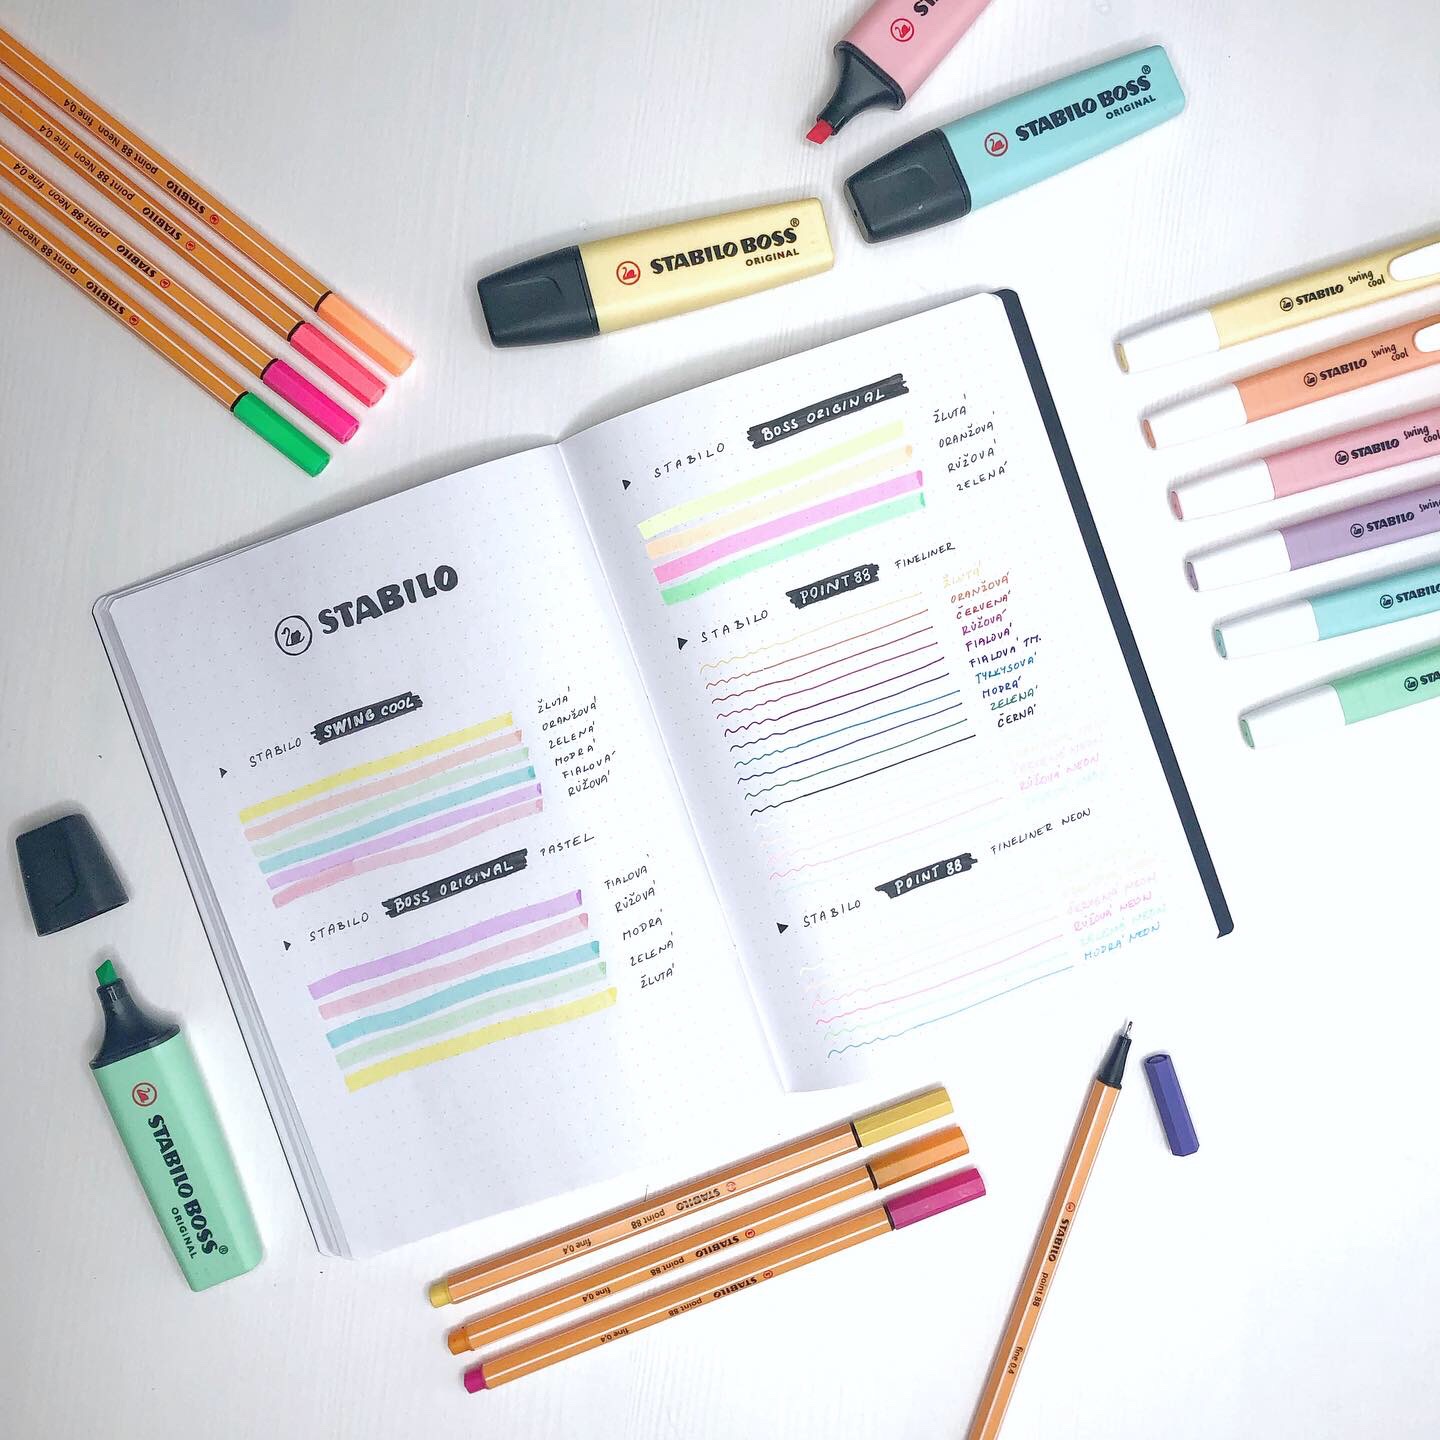 STABILO
STABILO SWING COOL
ŽLUTÁ
ORANŽOVÁ
ZELENÁ
MODRÁ
FIALOVÁ
RŮŽOVÁ
STABILO BOSS ORIGINAL PASTEL
FIALOVÁ
RŮŽOVÁ
MODRÁ
ZELENÁ
ŽLUTÁ
STABILO BOSS ORIGINAL
ŽLUTÁ
ORANŽOVÁ
RŮŽOVÁ
ZELENÁ
STABILO POINT 88 FINELINER
ŽLUTÁ
ORANŽOVÁ
ČERVENÁ
RŮŽOVÁ
FIALOVÁ
FIALOVÁ TM.
TYRKYSOVÁ
MODRÁ
ZELENÁ
ČERNÁ
RŮŽOVÁ NEON
STABILO POINT 88 FINELINER NEON
ČERVENÁ NEON
RŮŽOVÁ NEON
ZELENÁ NEON
MODRÁ NEON
STABILO point 88 Neon fine 0,4
STABILO point 88 Neon fine 0,4
STABILO point 88 Neon fine 0,4
STABILO point 88 Neon fine
STABILO BOSS®
ORIGINAL
STABILO BOSS®
ORIGINAL
STABILO BOSS®
ORIGINAL
STABILO swing cool
STABILO swing cool
STABILO swing cool
STABILO swing
STABILO
STABILO point 88 fine 0,4
STABILO point 88 fine 0,4
STABILO point 88 fine 0,4
STABILO point 88 fine 0,4